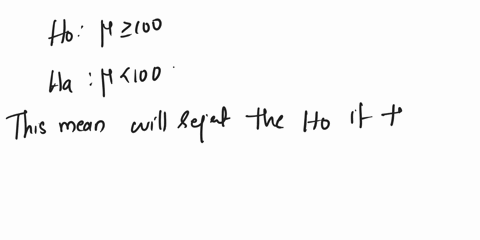 Ho: μ ≥ 100
Ha : μ < 100
This mean will reject the Ho if t